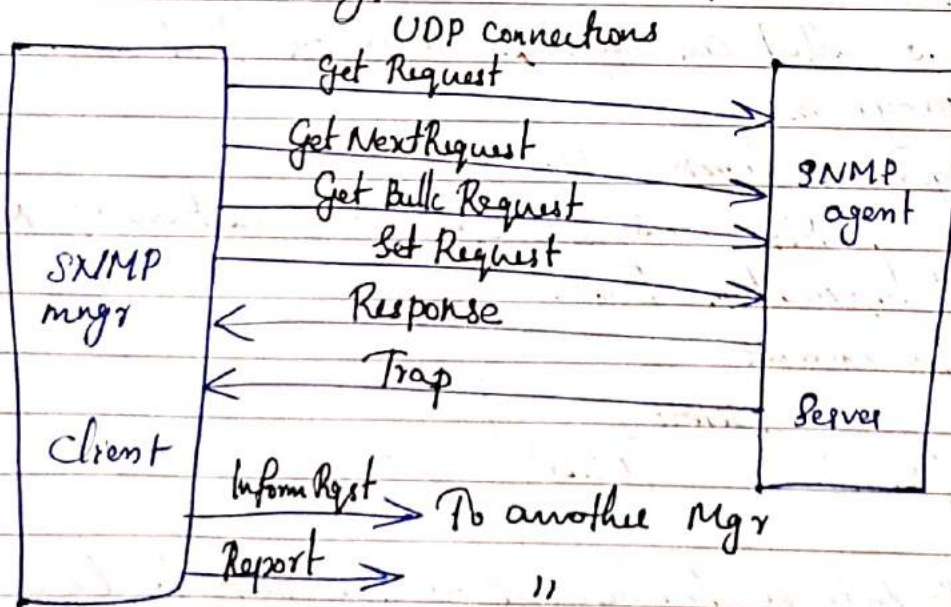 UDP connections
Get Request
Get NextRequest
Get Bulk Request
Set Request
Response
Trap
SNMP
mngr
Client
SNMP
agent
Server
Inform Rqst
To another Mgr
Report
"